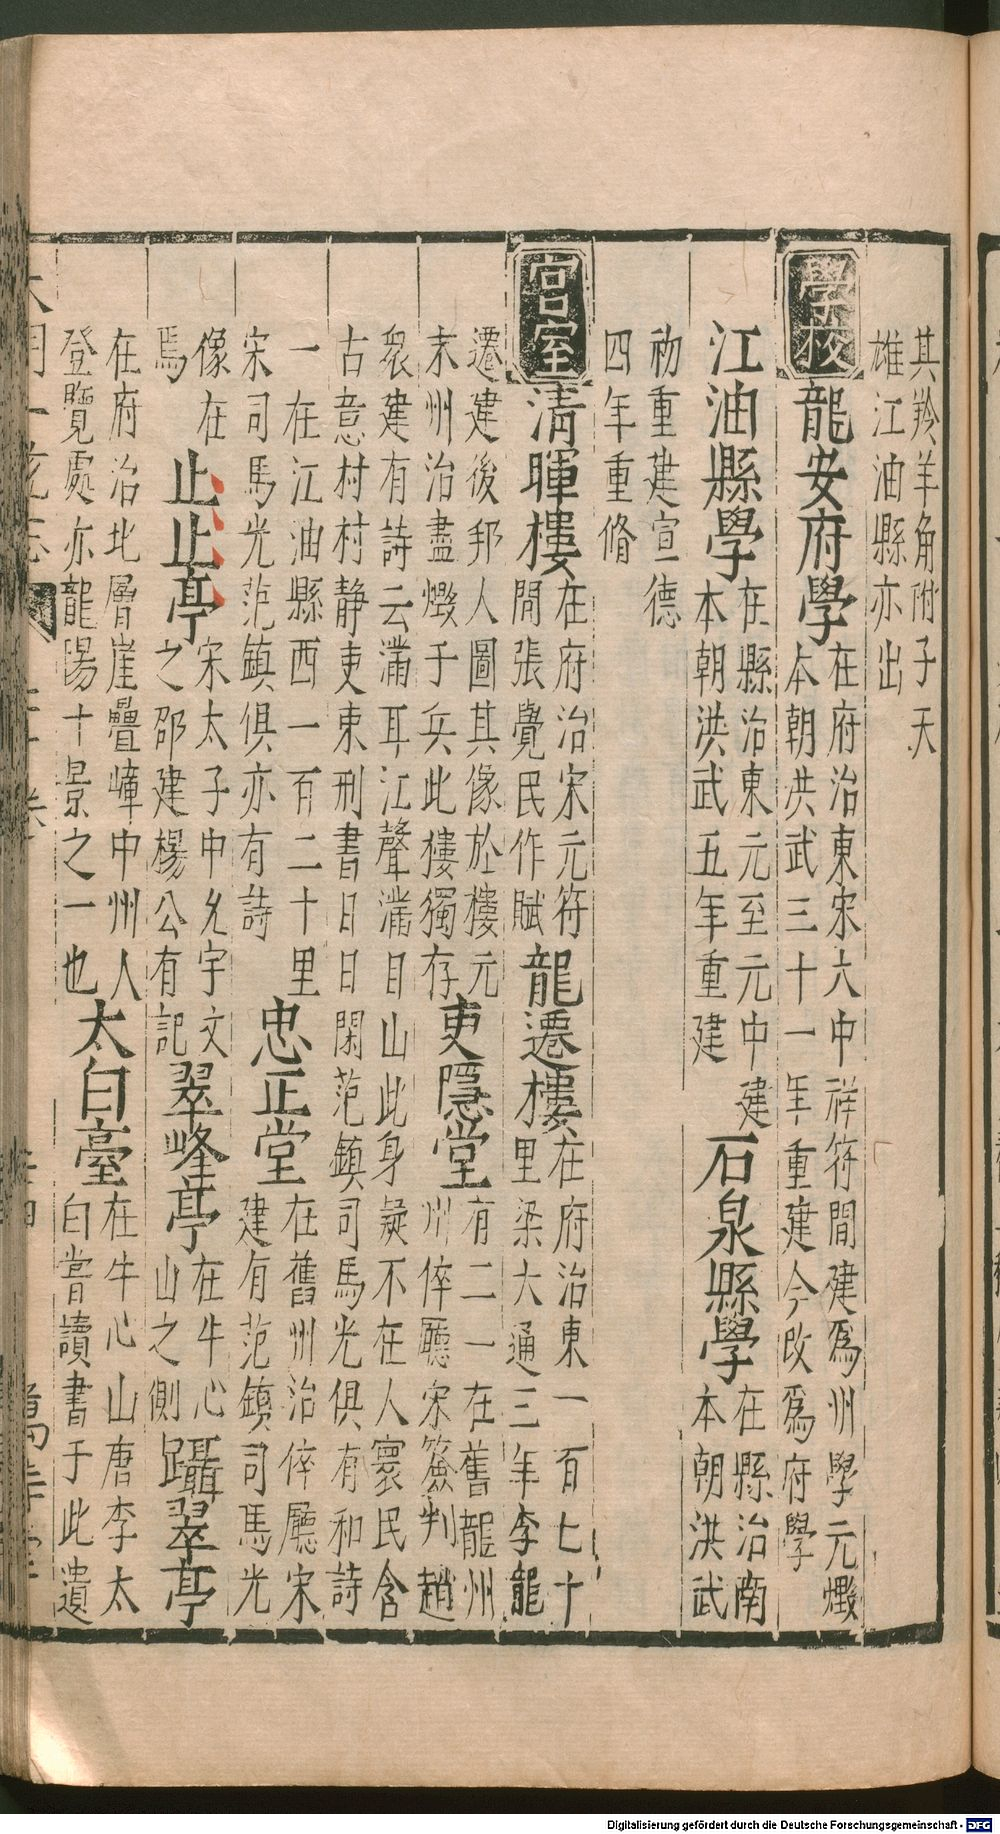 其羚羊角附子天
雄江油縣亦出
學校
龍安府學
在府治東宋大中祥符間建爲州學元燬
本朝洪武三十一年重建今改爲府學
江油縣學
在縣治東元至元中建
本朝洪武五年重建
石泉縣學
在縣治南
本朝洪武
初重建宣德
四年重脩
宮室
淸暉樓
在府治宋元符
間張覺民作賦
龍遷樓
在府治東一百七十
里梁大通三年李龍
遷建後邦人圖其像於樓元
末州治盡燬于兵此樓獨存
吏隱堂
有二一在舊龍州
州倅廳宋簽判趙
衆建有詩云滿耳江聲滿目山此身疑不在人寰民含
古意村村静吏束刑書日日閑范鎮司馬光俱有和詩
一在江油縣西一百二十里
宋司馬光范鎮俱亦有詩
忠正堂
在舊州治倅廳宋
建有范鎮司馬光
像在
焉
止止亭
宋太子中允宇文
之邵建楊公有記
翠峰亭
在牛心
山之側
躡翠亭
在府治北層崖疊嶂中州人
登覽處亦龍陽十景之一也
太白臺
在牛心山唐李太
白嘗讀書于此遺
Digitalisierung gefördert durch die Deutsche Forschungsgemeinschaft - DFG